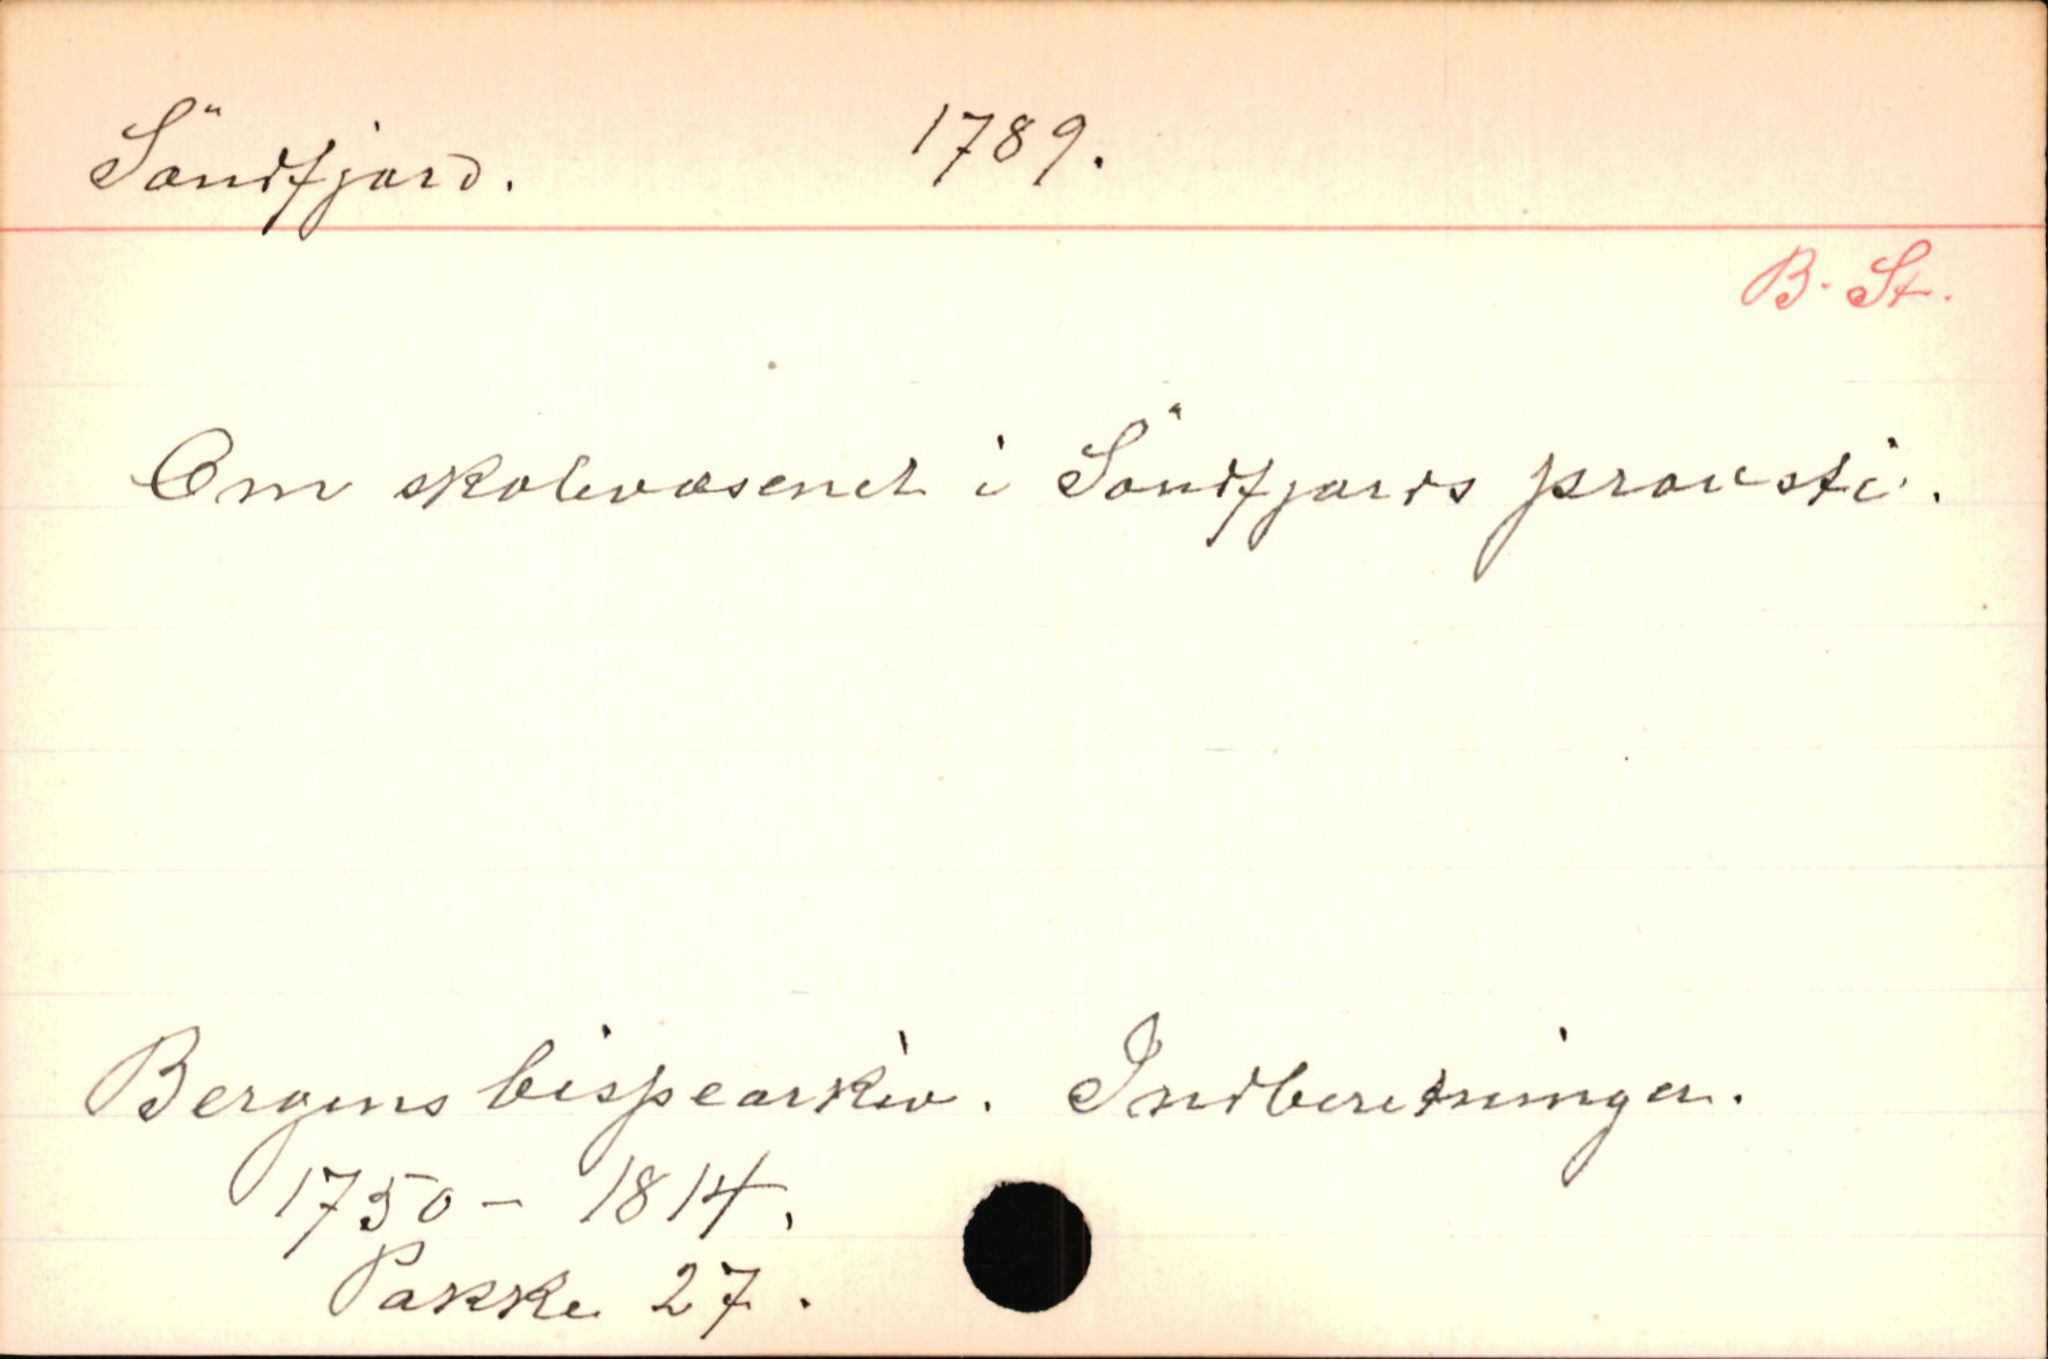 Söndfjord. 1789.
B. St.
Om skolevæsenet i Söndfjords provsti.
Bergens bispearkiv. Indberetninger.
1750 - 1814.
Pakke 27.